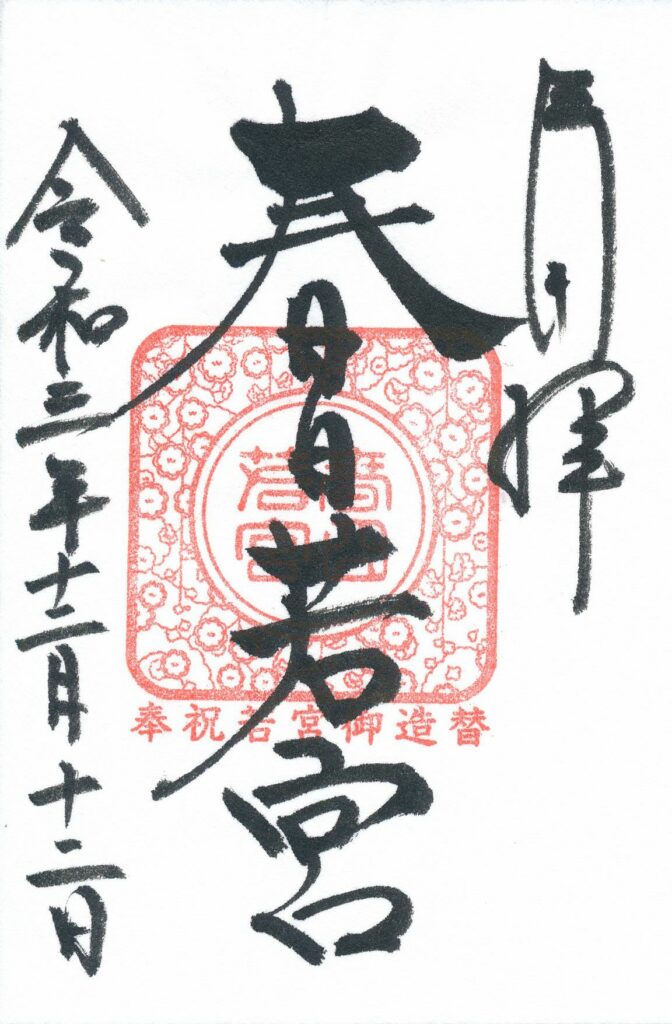 拝
春日若宮
春日
若宮
奉祝若宮御造替
令和三年十二月十二日